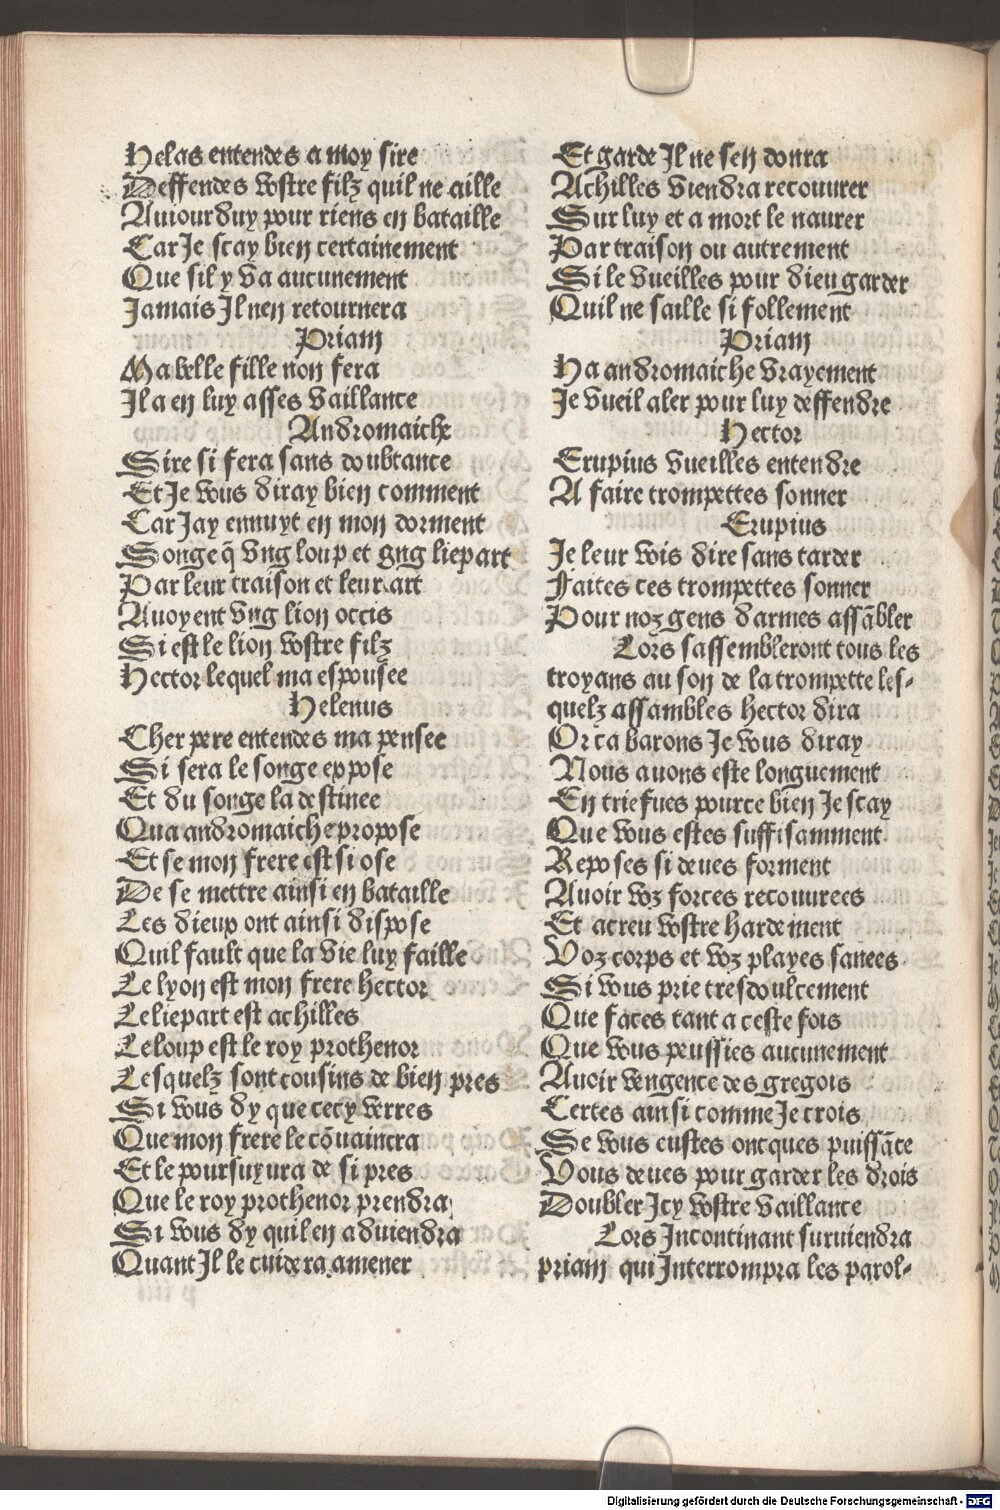 Helas entendes a moy sire
Deffendes vostre filz quil ne aille
Auiourduy pour riens en bataille
Car Je scay bien certainement
Que sil y va aucunement
Jamais Il nen retournera
Priam
Ma belle fille non fera
Il a en luy asses vaillance
Andromaiche
Sire si fera sans doubtance
Et Je vous diray bien comment
Car Jay ennuyt en mon dorment
Songe q̄ vng loup et gng liepart
Par leur traison et leur art
Auoyent vng lion occis
Si est le lion vostre filz
Hector lequel ma espousee
Helenus
Cher pere entendes ma pensee
Si sera le songe expose
Et du songe la destinee
Qua andromaiche propose
Et se mon frere est si ose
De se mettre ainsi en bataille
Les dieux ont ainsi dispose
Quil fault que la vie luy faille
Le lyon est mon frere hector
Le liepart est achilles
Le loup est le roy prothenor
Lesquelz sont cousins de bien pres
Si vous dy que cecy verres
Que mon frere le cōuaincra
Et le poursuyura de si pres
Que le roy prothenor prendra
Si vous dy quil en aduiendra
Quant Il le cuidera amener
Et garde Il ne sen donra
Achilles viendra recouurer
Sur luy et a mort le naurer
Par traison ou autrement
Si le vueilles pour dieu garder
Quil ne saille si follement
Priam
Ha andromaiche vrayement
Je vueil aler pour luy deffendre
Hector
Erupius vueilles entendre
A faire trompettes sonner
Erupius
Je leur vois dire sans tarder
Faites ces trompettes sonner
Pour noz gens darmes assābler
Lors sassembleront tous les
troyans au son de la trompette les-
quelz assambles hector dira
Or ca barons Je vous diray
Nous auons este longuement
En triefues pource bien Je scay
Que vous estes suffisamment
Reposes si deues forment
Auoir voz forces recouurees
Et acreu vostre hardement
Voz corps et voz playes sanees
Si vous prie tresdoulcement
Que faces tant a ceste fois
Que vous peussies aucunement
Auoir vengence des gregois
Certes ainsi comme Je crois
Se vous eustes oncques puissāce
Vous deues pour garder les drois
Doubler Icy vostre vaillance
Lors Incontinant suruiendra
priam qui Interrompra les parol-
Digitalisierung gefördert durch die Deutsche Forschungsgemeinschaft - DFG